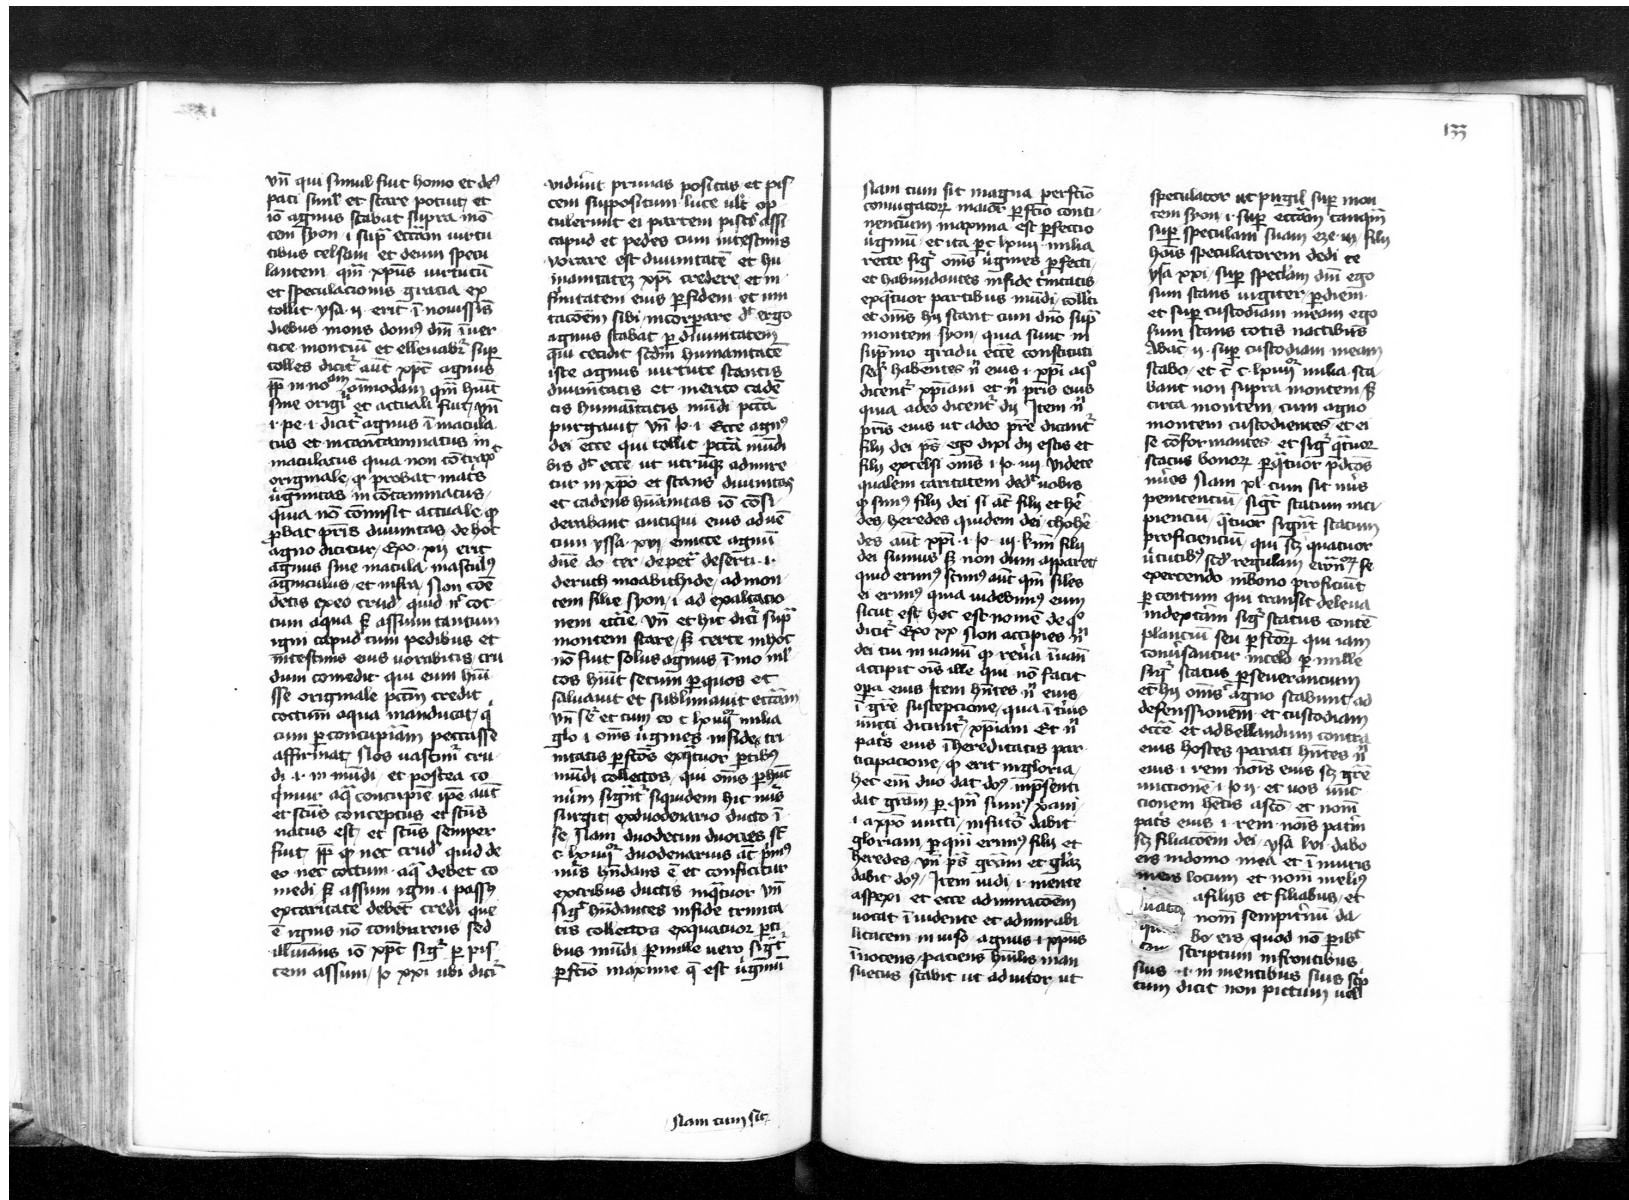 133
vn̄ qui simul fuit homo et deꝰ
pati siml̄ et stare potuit et
iō agnus stabat supra mō
tem syon · i supᵃ eccām virtu
tibus celsam et deum specu
lantem · qm̄ xp̄us virtutū
et speculacionis gracia ex
tollit ysa · ii · erit ī nouissīs
diebus mons domꝰ dn̄i ī ver
tice montiū et elleuabr̄ suꝑ
colles dicit᷑ aūt xp̄c agnus
sine origīˡⁱ et actuali fuit vn̄
i · pe · i · dicit᷑ agnus īmacula
tus et incontaminatus in
maculatus quia non cōtraxᵗ
originale ꝙ probat matˢ
v̓ginitas incōtaminatus
quia nō cōmisit actuale ꝙ
ꝓbat pr̄is diuinitas de hoc
agno dicitur Exo · xii erit
agnus sine macula masculꝰ
agniculus et infra Non com̄
detis ex eo crudˡ quid nͨ coc
tum aqua sꝫ assum tantum
igni capud cum pedibus et
intestinis eius vorabitis cru
dum comedit qui eum hūi
sse originale pctm̄ credit
coctum aqua manducat qͥ
eum ꝑ concupiām peccasse
affirmat Nos nascim᷑ cru
di · i · in mūdi et postea co
qͥmur aqᵃ concupie ip̄e aūt
et scūs conceptus et scūs
natus est et scūs semper
fuit ꝙ nec crudˡ quid de
eo nec coctum aqᵃ debet co
medi sꝫ assum igni · i passꝰ
ex caritate debet credi que
ē ignis nō comburens sed
illūians iō xp̄c sigᵗ᷑ ꝑ pis
cem assum Jo xxi ubi dicit᷑
viderūt prunas positas et pis
cem suppositum luce ulᵗ op
tulerunt ei partem piscˢ assi
capud et pedes cum intestinis
vorare est diuinitatē et hu
manitatē xp̄i credere et in
firmitatem eius ꝑ fidem et imi
tacōem sibi incorꝑare d᷑ ergo
agnus stabat ꝑ diuinitatem
qui cecidit scdm̄ humanitatē
iste agnus virtute stantis
diuinitatis et merito cadē
tis humāitatis mūdi pctā
purgauit vn̄ Jo · i · Ecce agnꝰ
dei ecce qui tollit pctā mūdi
bis d᷑ ecce ut utrūqꝫ admire
tur in xp̄o et stans diuinitas
et cadens hūanitas iō cōsi
derabant antiqui eius aduē
tum yssa · xvi · emitte agnū
dn̄e do · ter · de petᵃ deserti · i ·
de ruth moabithide ad mon
tem filie syon · i ad exaltacio
nem eccīe vn̄ et hic dicit᷑ supᵃ
montem stare sꝫ certe in hoc
nō fuit solus agnus īmo ml̄
tos hūit secum ꝑ quos et
saluauit et sublimauit eccām
vn̄ seͬ et cum eo c lxiiiiᵒʳ milia
glo · i oms̄ v̓gines in fide tri
nitatis ꝑfc̄os ex qᵃtuor ꝑtibꝰ
mūdi collectos qui oms̄ ꝑ hūc
nūm sigᵃnt᷑ siquidem hic nūs
surgit ex duodenario ducto ī
se Nam duodecim duocies st̄
c lxiiiiᵒʳ duodenarius aūt pͥmꝰ
nūs hn̄dans ē et conficitur
ex tribus ductis in qᵃtuor vn̄
sigᵗ᷑ hn̄dantes in fide trinita
tis collectos ex quatuor ꝑti
bus mūdi ꝑ mille vero sigᵗ᷑
ꝑfc̄io maxime q̄ est v̓ginū
Nam cum sit
Nam cum sit magna perfctō
coniugatoꝝ maior ꝑfctō conti
nencium maxima est ꝑfectio
v̓ginū et ita ꝑ c lxiiii milia
recte sigᵗ᷑ oms̄ v̓gines ꝑfecti
et habundantes in fide t̓nitatis
ex qᵃtuor partibus mūdi collc̄ti
et oms̄ hii stant cum dn̄o supᵃ
montem syon quia sunt in
supͥmo gradu ecce constituti
seqͬ habentes nͫ eius · i xp̄i a qͦ
dicent᷑ xp̄iani et nͫ pr̄is eius
quia a deo dicent᷑ dii Item nͫ
pr̄is eius ut a deo pr̄e dicant᷑
filii dei pˢ ego dixi dii estis et
filii excelsi oms̄ i Jo · iii videte
qualem caritatem dedᵗ nobis
ꝙ simꝰ filii dei si aūt filii et he
des heredes quidem dei cohe
des aūt xp̄i · i · Jo · iii · kmi filii
dei sumus sꝫ non dum apparet
quid erimꝰ scimꝰ aūt qm̄ siles
ei erimꝰ quia videbimꝰ eum
sicut est hoc est nomē de qͦ
dicit᷑ Exo xx Non accipies nͫ
dei tui in vanū ꝙ reuā ī vanū
accipit oīs ille qui nō facit
oꝑa eius Item hn̄tes nͫ eius
ī gr̄e suscepcione qua ī t̓ius
vncti dicunt᷑ xp̄iani Et nͫ
patˢ eius ī hereditatis par
ticipacione ꝙ erit in gloria
hec em̄ duo dat doꝰ in pͥsenti
dat grām ꝑ qm̄ simꝰ xᵃni
i a xp̄o vncti in futō dabit
gloriam ꝑ qm̄ erimꝰ filii et
heredes vn̄ pˢ grām et glām
dabit doꝰ Item vidi · i · mente
aspexi et ecce admiracōem
vocat ī vidente et admirabi
litatem in viso agnus i xp̄us
īnocens paciens hūilis man
suetus stabat ut adiutor ut
speculator ut pugil suꝑ mon
tem syon · i · suꝑ eccām tanqm̄
suꝑ speculam suam eze · iii · fili
hoīs speculatorem dedi te
ysa xxi · suꝑ speclam dn̄i ego
sum stans iugiter ꝑ diem
et suꝑ custodiam meam ego
sum stans totis noctibus
Abac̄ · ii · suꝑ custodiam meam
stabo et c̄ c · lxiiiiᵒʳ milia sta
bant non supra montem sꝫ
circa montem cum agno
montem custodientes et ei
se cōformantes et sigᵗ᷑ qᵃtuor
status bonoꝝ ꝑ qᵃtuor p̄dc̄os
nūos Nam xl cum sit nūs
penitencium sigᵗ᷑ statum inci
piencium qᵃtuor sigᵗ᷑ statum
proficiencium qui scꝫ quatuor
v̓tutibꝰ scd̄ regulam ewāꝝ se
exercendo in bono proficiūt
ꝑ centum qui transit de leua
in dextām sigᵗ᷑ status contē
plancium seu ꝑfctoꝝ qui iam
conu̓santur in celo ꝑ mille
sigᵗ᷑ status ꝑseuerancium
et hii oms̄ c̄ agno stabunt ad
defenssionem et custodiam
eccīe et ad bellandum contra
eius hostes parati hn̄tes nͫ
eius · i rem noīs eius scꝫ gr̄e
vnctione · i Jo ii · et vos vnc
cionem hetis a scō et nom̄
patˢ eius · i · rem noīs patͥni
scꝫ filiacōem dei ysa lvi · dabo
eis in domo mea et ī muris
meis locum et nom̄ meliꝰ
a filiis et filiabus et
nom̄ sempitͥnū da
bo eis quod nō ꝑibᵗ
scriptum in frontibus
suis · i · in mentibus suis scͥp
tum dicit non pictum vel